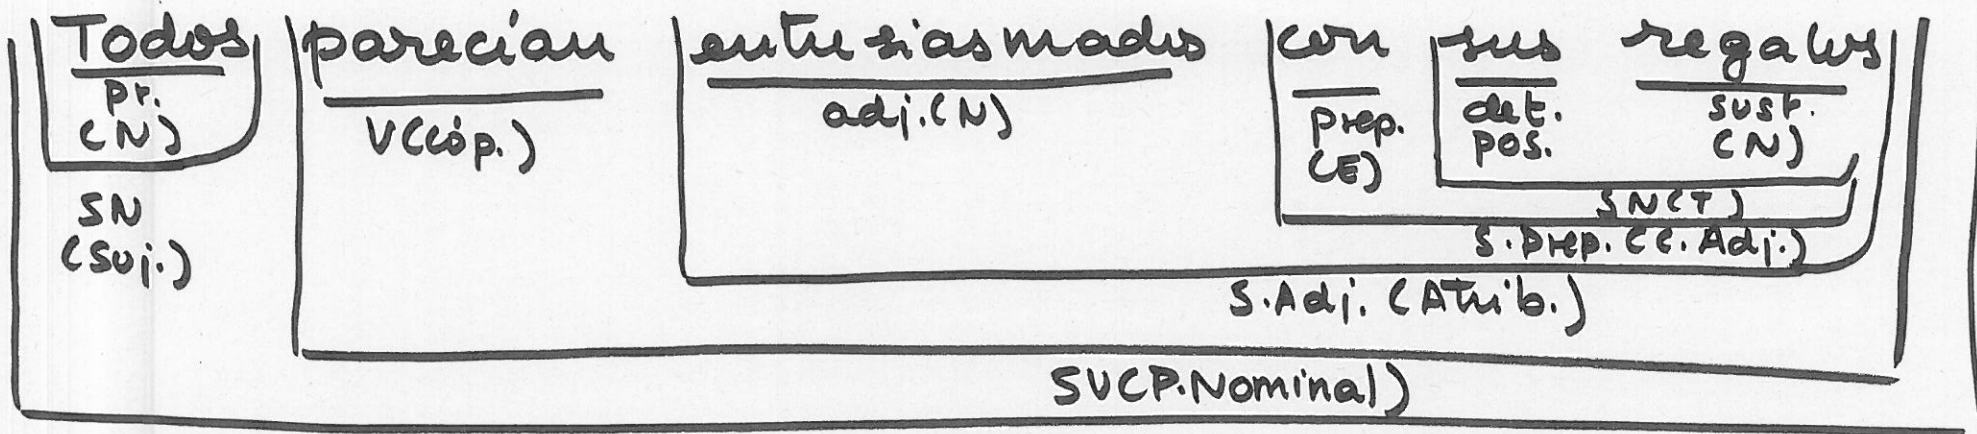 Todos parecían entusiasmados con sus regalos
pr. V(cóp.) adj.(N) prep. det. sust.
(N) (E) pos. (N)
SN SN(T)
(Suj.) S.Prep.(C.Adj.)
S.Adj.(Atrib.)
SV(P.Nominal)